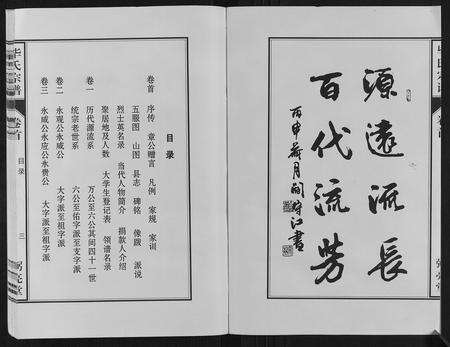 源遠流長
百代流芳
丙申
月
江書
目录
卷首 序传 章公赠言 凡例 家规 家训
五服图 山图 县志 碑铭 像赞 派说
烈士英名录 当代人物简介 捐款人介绍
聚居地及人数 大学生登记表 领谱名录
卷一 历代源流系 万公至六公其间四十一世
统宗老世系 六公至佑字派至支字派
卷二 永观公永威公 大字派至祖字派
卷三 永威公永应公永贵公 大字派至祖字派
毕氏宗谱
卷首
目录
三